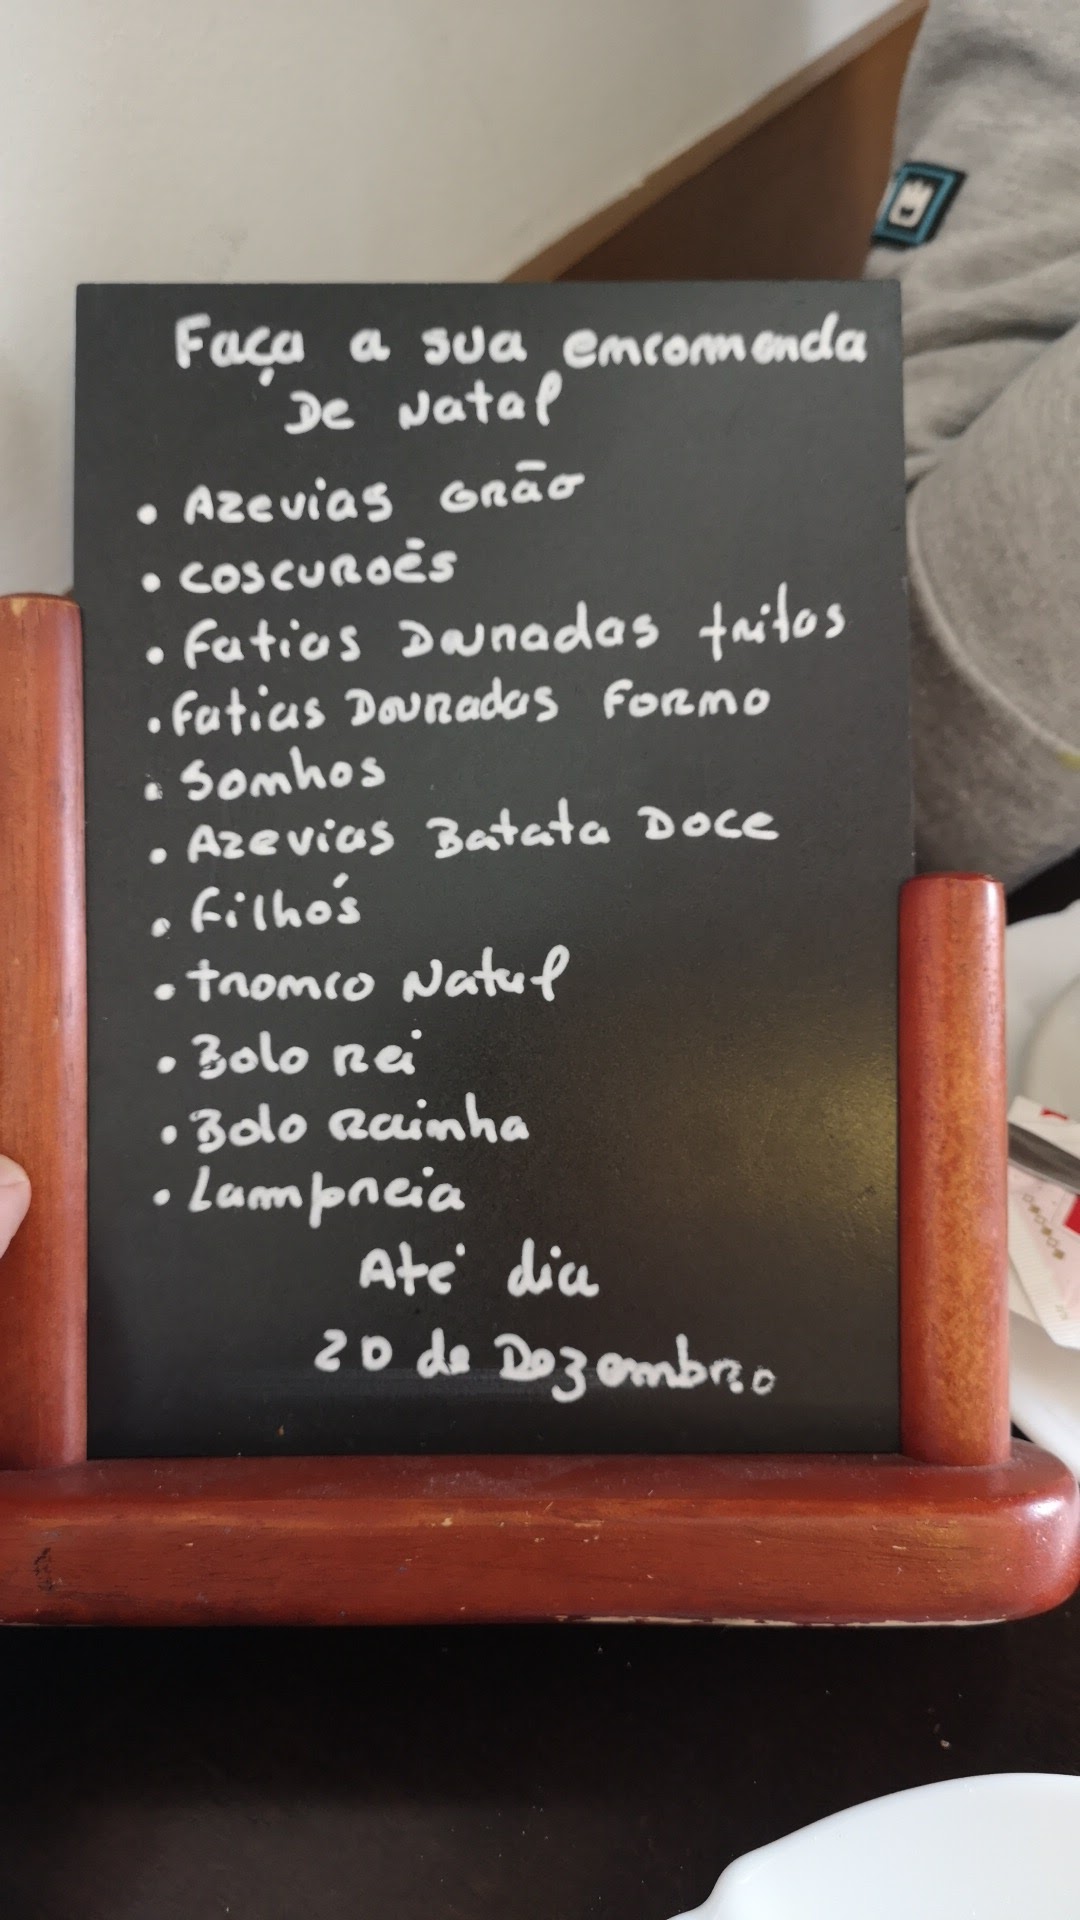 Faça a sua encomenda
De Natal
• Azevias Grão
• coscurões
• Fatias Douradas fritas
• Fatias Douradas Formo
• Sonhos
• Azevias Batata Doce
• Filhós
• tronco Natal
• Bolo Rei
• Bolo Rainha
• Lampreia
Até dia
20 de Dezembro